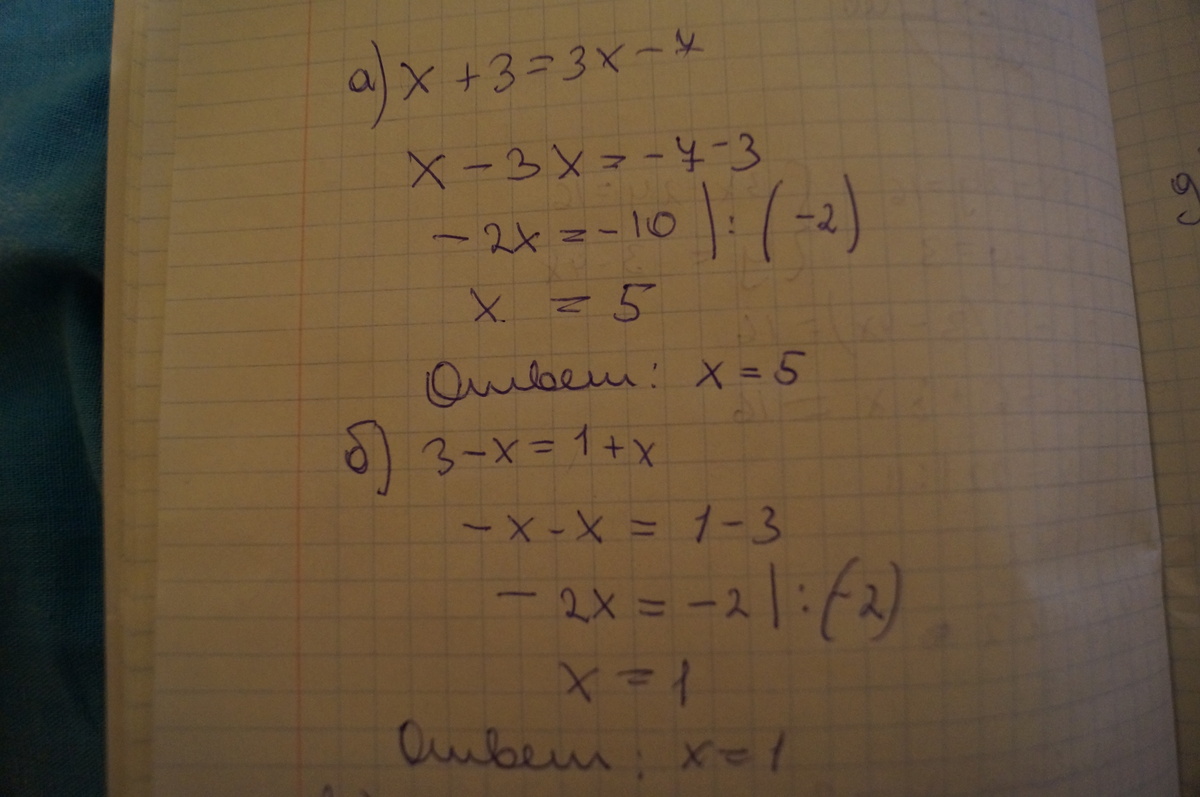 а) x + 3 = 3x - 7
x - 3x = -7 - 3
- 2x = -10 | : (-2)
x = 5
Ответ: x = 5
б) 3 - x = 1 + x
- x - x = 1 - 3
- 2x = -2 | : (-2)
x = 1
Ответ: x = 1